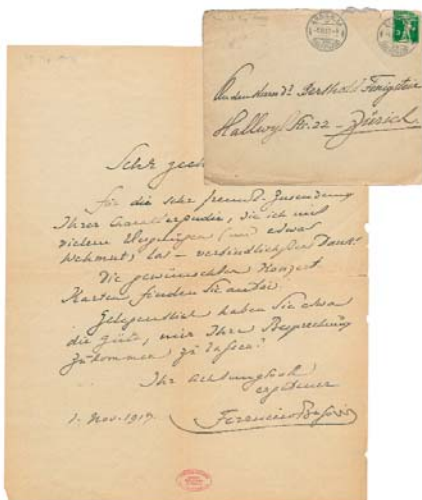 Dr. Berthold Fenigstein
Hallwylstr. 22 – Zürich
Sehr geeh
für die sehr freundl. Zusendung
Ihrer die ich mit
vielem Vergnügen (und etwas
Wehmut) las – verbindlichsten Dank!
Die gewünschten Konzert
Karten finden Sie anbei.
Gelegentlich haben Sie etwa
die Güte, mir Ihre Besprechung
zukommen zu lassen?
Ihr achtungsvoll
ergebener
1. Nov. 1917. Ferruccio Busoni